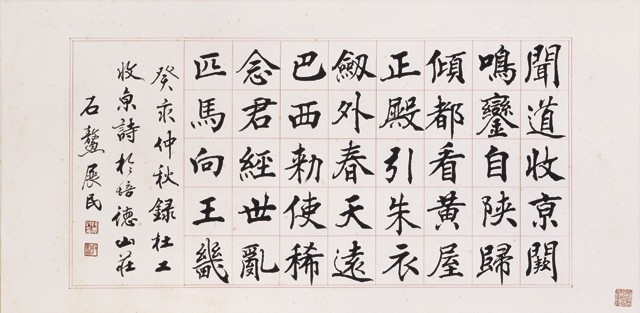 聞道收京闕
鳴鑾自陝歸
傾都看黃屋
正殿引朱衣
劔外春天遠
巴西勅使稀
念君經世亂
匹馬向王畿
癸亥仲秋録杜工
收京詩於培德山莊
石鰲展民